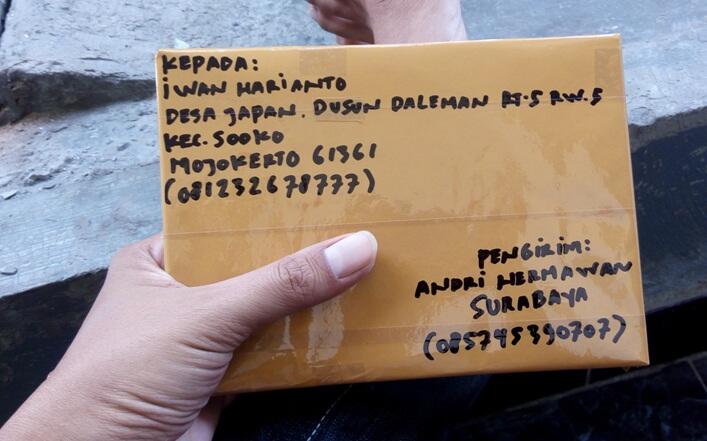 KEPADA:
IWAN HARIANTO
DESA JAPAN. DUSUN DALEMAN RT.5 RW.5
KEC. SOOKO
MOJOKERTO 61361
(081232678777)
PENGIRIM:
ANDRI HERMAWAN
SURABAYA
(085745390707)